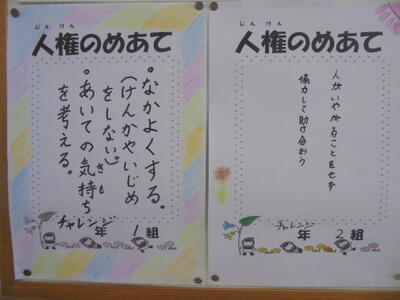 じんけん
人権のめあて
。なかよくする。
(けんかやいじめ
をしない)
。あいての気持ち
きも
を考える。
チャレンジ
年 1組
じんけん
人権のめあて
人がいやがることをせず
協力して助け合おう
チャレンジ
年 2組